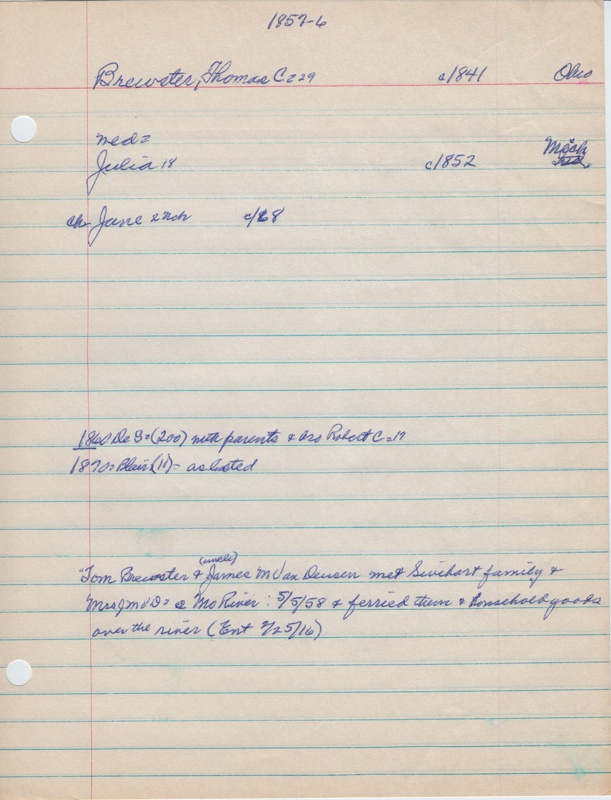 1857-6
Brewster, Thomas C = 29 c/1841 Ohio
med =
Julia 18 c/1852 Mich
ch - Jane 2 Neb c/68
1860 De S = (200) with parents & bro Robert C = 17
1870 = Blair (11) = as listed
(uncle)
"Tom Brewster & James M Van Deusen met Swihart family &
Mrs J M V D = @ Mo River: 5/5/58 & ferried them & household goods
over the river (Ent 2/25/16)